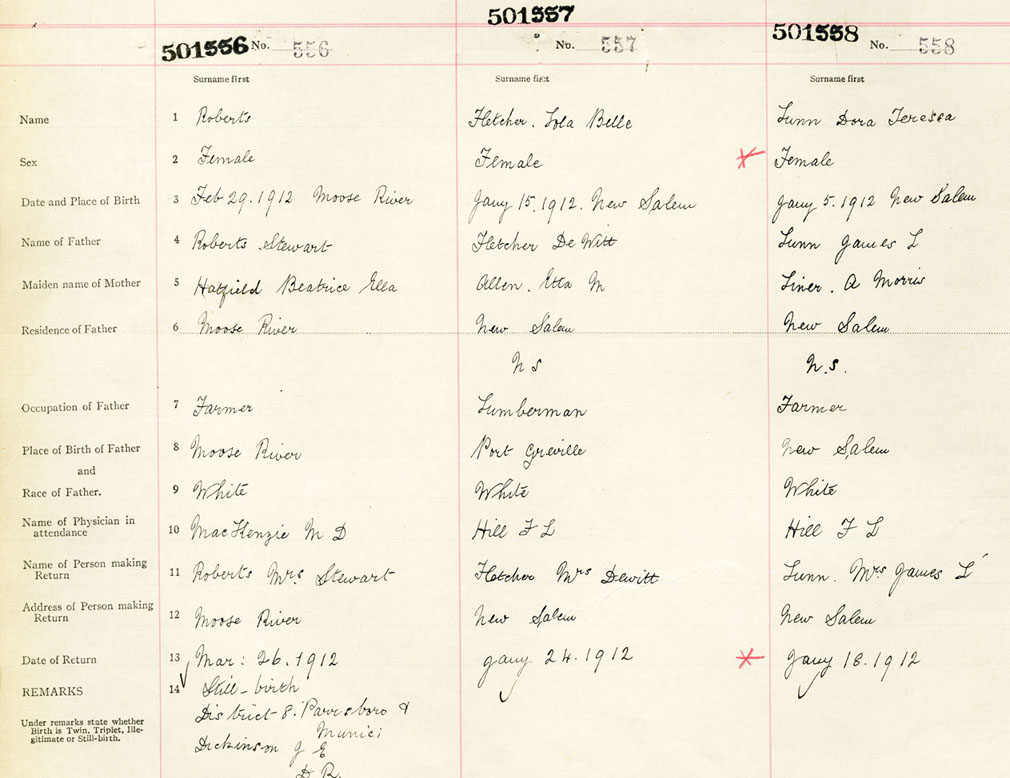 501557
501556 No. 556 No. 557 501558 No. 558
Surname first Surname first Surname first
Name 1 Roberts Fletcher. Lola Belle Lunn Dora Teressa
Sex 2 Female Female Female
Date and Place of Birth 3 Feb 29.1912 Moose River Jany 15.1912. New Salem Jany 5.1912 New Salem
Name of Father 4 Roberts Stewart Fletcher De Witt Lunn James L
Maiden name of Mother 5 Hatfield Beatrice Ella Allen. Etta M Liner. A Morris
Residence of Father 6 Moose River New Salem New Salem
N S N.S.
Occupation of Father 7 Farmer Lumberman Farmer
Place of Birth of Father 8 Moose River Port Greville New Salem
and
Race of Father. 9 White White White
Name of Physician in
attendance 10 MacKenzie M D Hill F L Hill F L
Name of Person making
Return 11 Roberts Mrs Stewart Fletcher Mrs Dewitt Lunn. Mrs James L
Address of Person making
Return 12 Moose River New Salem New Salem
Date of Return 13 Mar: 26.1912 Jany 24.1912 Jany 18.1912
REMARKS 14 Still-birth
Under remarks state whether
Birth is Twin, Triplet, Ille-
gitimate or Still-birth.
District 8. Parrsboro &
Munic:
Dickinson J E
D R.